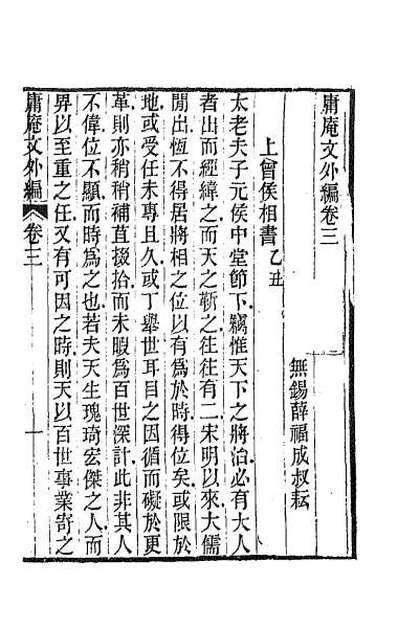 庸庵文外編卷三
無錫薛福成叔耘
上曾侯相書乙丑
太老夫子元侯中堂節下竊惟天下之將治必有大人
者出而經緯之而天之靳之往往有二宋明以來大儒
閒出恆不得居將相之位以有爲於時得位矣或限於
地或受任未專且久或丁舉世耳目之因循而礙於更
革則亦稍稍補苴掇拾而未暇爲百世深計此非其人
不偉位不顯而時爲之也若夫天生瑰琦宏傑之人而
畀以至重之任又有可因之時則天以百世事業寄之
庸庵文外編 卷三 一